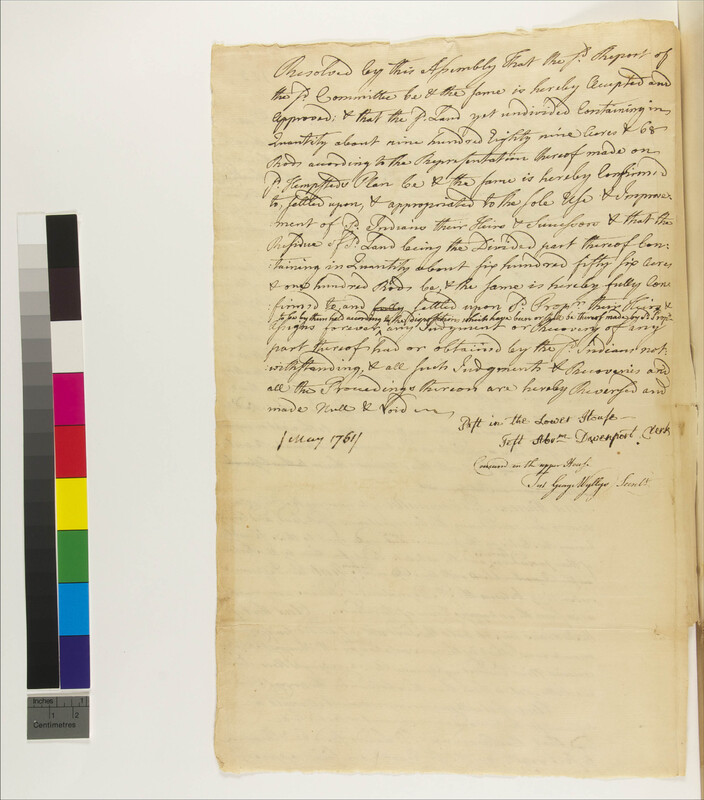 Resolved by this Assembly That the sd. Report of
the sd. Committee be & the same is hereby Accepted and
Approved; & that the sd. Land yet undivided Containing in
Quantity about nine hundred Eighty nine Acres & 68
Rods according to the Representation thereof made on
sd. Hempsteds Plan be & the same is hereby Confirm'd
to, settled upon, & appropriated to the sole Use & Improve-
ment of sd. Indians their Heirs & Successors & that the
Residue of sd. Land being the Divided part thereof Con-
taining in Quantity about six hundred fifty six Acres
& one hundred Rods be, & the same is hereby fully Con-
firmed to, and settled upon sd. Propr.s their Heirs &
to be by them held according to the disposition which have been or shall be thereof made by sd. Propr.s
Assigns forever, any Judgment or Recovery of any
part thereof had or obtained by the sd. Indians not-
withstanding, & all such Judgments & Recoveries and
all the Proceedings thereon are hereby Reversed and
made Null & Void
Past in the Lower House
[May 1761]
Test Abrm. Davenport Clerk
Concurred in the upper House
Test George Wyllys Secret.